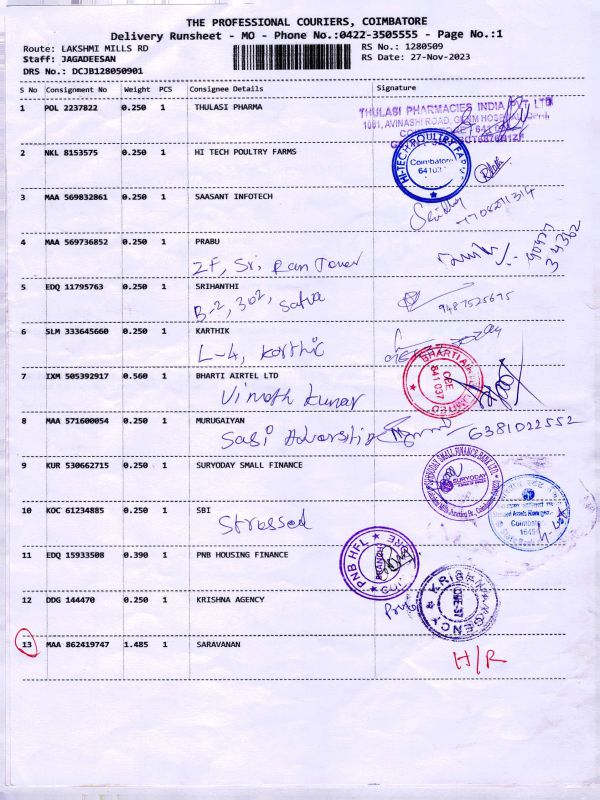 THE PROFESSIONAL COURIERS, COIMBATORE
Delivery Runsheet - MO - Phone No.:0422-3505555 - Page No.:1
Route: LAKSHMI MILLS RD
RS No.: 1280509
Staff: JAGADEESAN
RS Date: 27-Nov-2023
DRS No.: DCJB128050901
S No Consignment No Weight PCS Consignee Details Signature
1 POL 2237822 0.250 1 THULASI PHARMA
THULASI PHARMACIES INDIA PVT. LTD
1081, AVINASHI ROAD,
2 NKL 8153575 0.250 1 HI TECH POULTRY FARMS
HI-TECH POULTRY FARM
Coimbatore
641037
3 MAA 569832861 0.250 1 SAASANT INFOTECH
7708211314
4 MAA 569736852 0.250 1 PRABU
2F, Sri Ram Tower
5 EDQ 11795763 0.250 1 SRIHANTHI
B-2, 302, Satva
9487525675
6 SLM 333645660 0.250 1 KARTHIK
L-4, Karthic
7 IXM 505392917 0.560 1 BHARTI AIRTEL LTD
BHARTI AIRTEL LIMITED
CBE
641 037
Vinoth Kumar
8 MAA 571600054 0.250 1 MURUGAIYAN
Sasi Advertising
6381022552
9 KUR 530662715 0.250 1 SURYODAY SMALL FINANCE
SURYODAY SMALL FINANCE BANK LTD
SURYODAY
10 KOC 61234885 0.250 1 SBI
Stressed
Stressed Assets Management
Coimbatore
11 EDQ 15933508 0.390 1 PNB HOUSING FINANCE
PNB HFL
BRANCH
12 DDG 144470 0.250 1 KRISHNA AGENCY
KRISHNA AGENCY
CBE-37
13 MAA 862419747 1.485 1 SARAVANAN
H/R